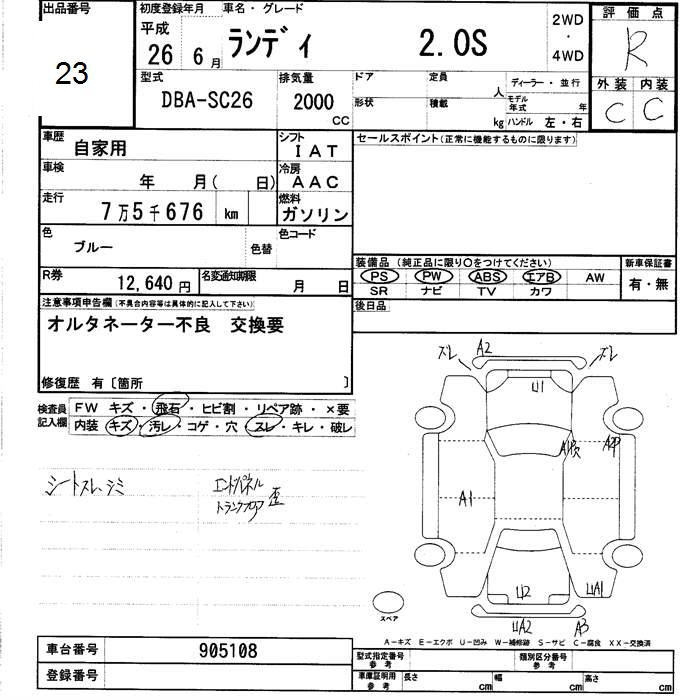 出品番号
23
初度登録年月 車名・グレード
平成
26 6月 ランディ 2.0S
2WD
・
4WD
評価点
R
外装 内装
C C
型式
DBA-SC26
排気量
2000
CC
ドア 定員 人
形状 積載 kg
ディーラー・並行
モデル年式 年
ハンドル 左・右
車歴
自家用
シフト
IAT
セールスポイント(正常に機能するものに限ります)
車検
年 月( 日)
冷房
AAC
走行
7万5千676 km
燃料
ガソリン
色
ブルー
色替
色コード
装備品 (純正品に限り〇をつけてください)
PS PW ABS エアB AW
SR ナビ TV カワ
新車保証書
有・無
R券
12,640円
名変通知期限
月 日
後日品
注意事項申告欄(不具合内容等は具体的に記入して下さい)
オルタネーター不良 交換要
修復歴 有〔箇所 〕
検査員
記入欄
FW キズ・飛石・ヒビ割・リペア跡・×要
内装 キズ・汚レ・コゲ・穴・スレ・キレ・破レ
シートスレ、シミ
エンドパネル
トランクフロア 歪
ズレ A2 ズレ
U1
A2P
A1
U2 UA1
UA2 A3
スペア
A-キズ E-エクボ U-凹み W-補修跡 S-サビ C-腐食 XX-交換済
車台番号 905108
登録番号
型式指定番号
参考
類別区分番号
参考
車庫証明用
参考
長さ cm 幅 cm 高さ cm